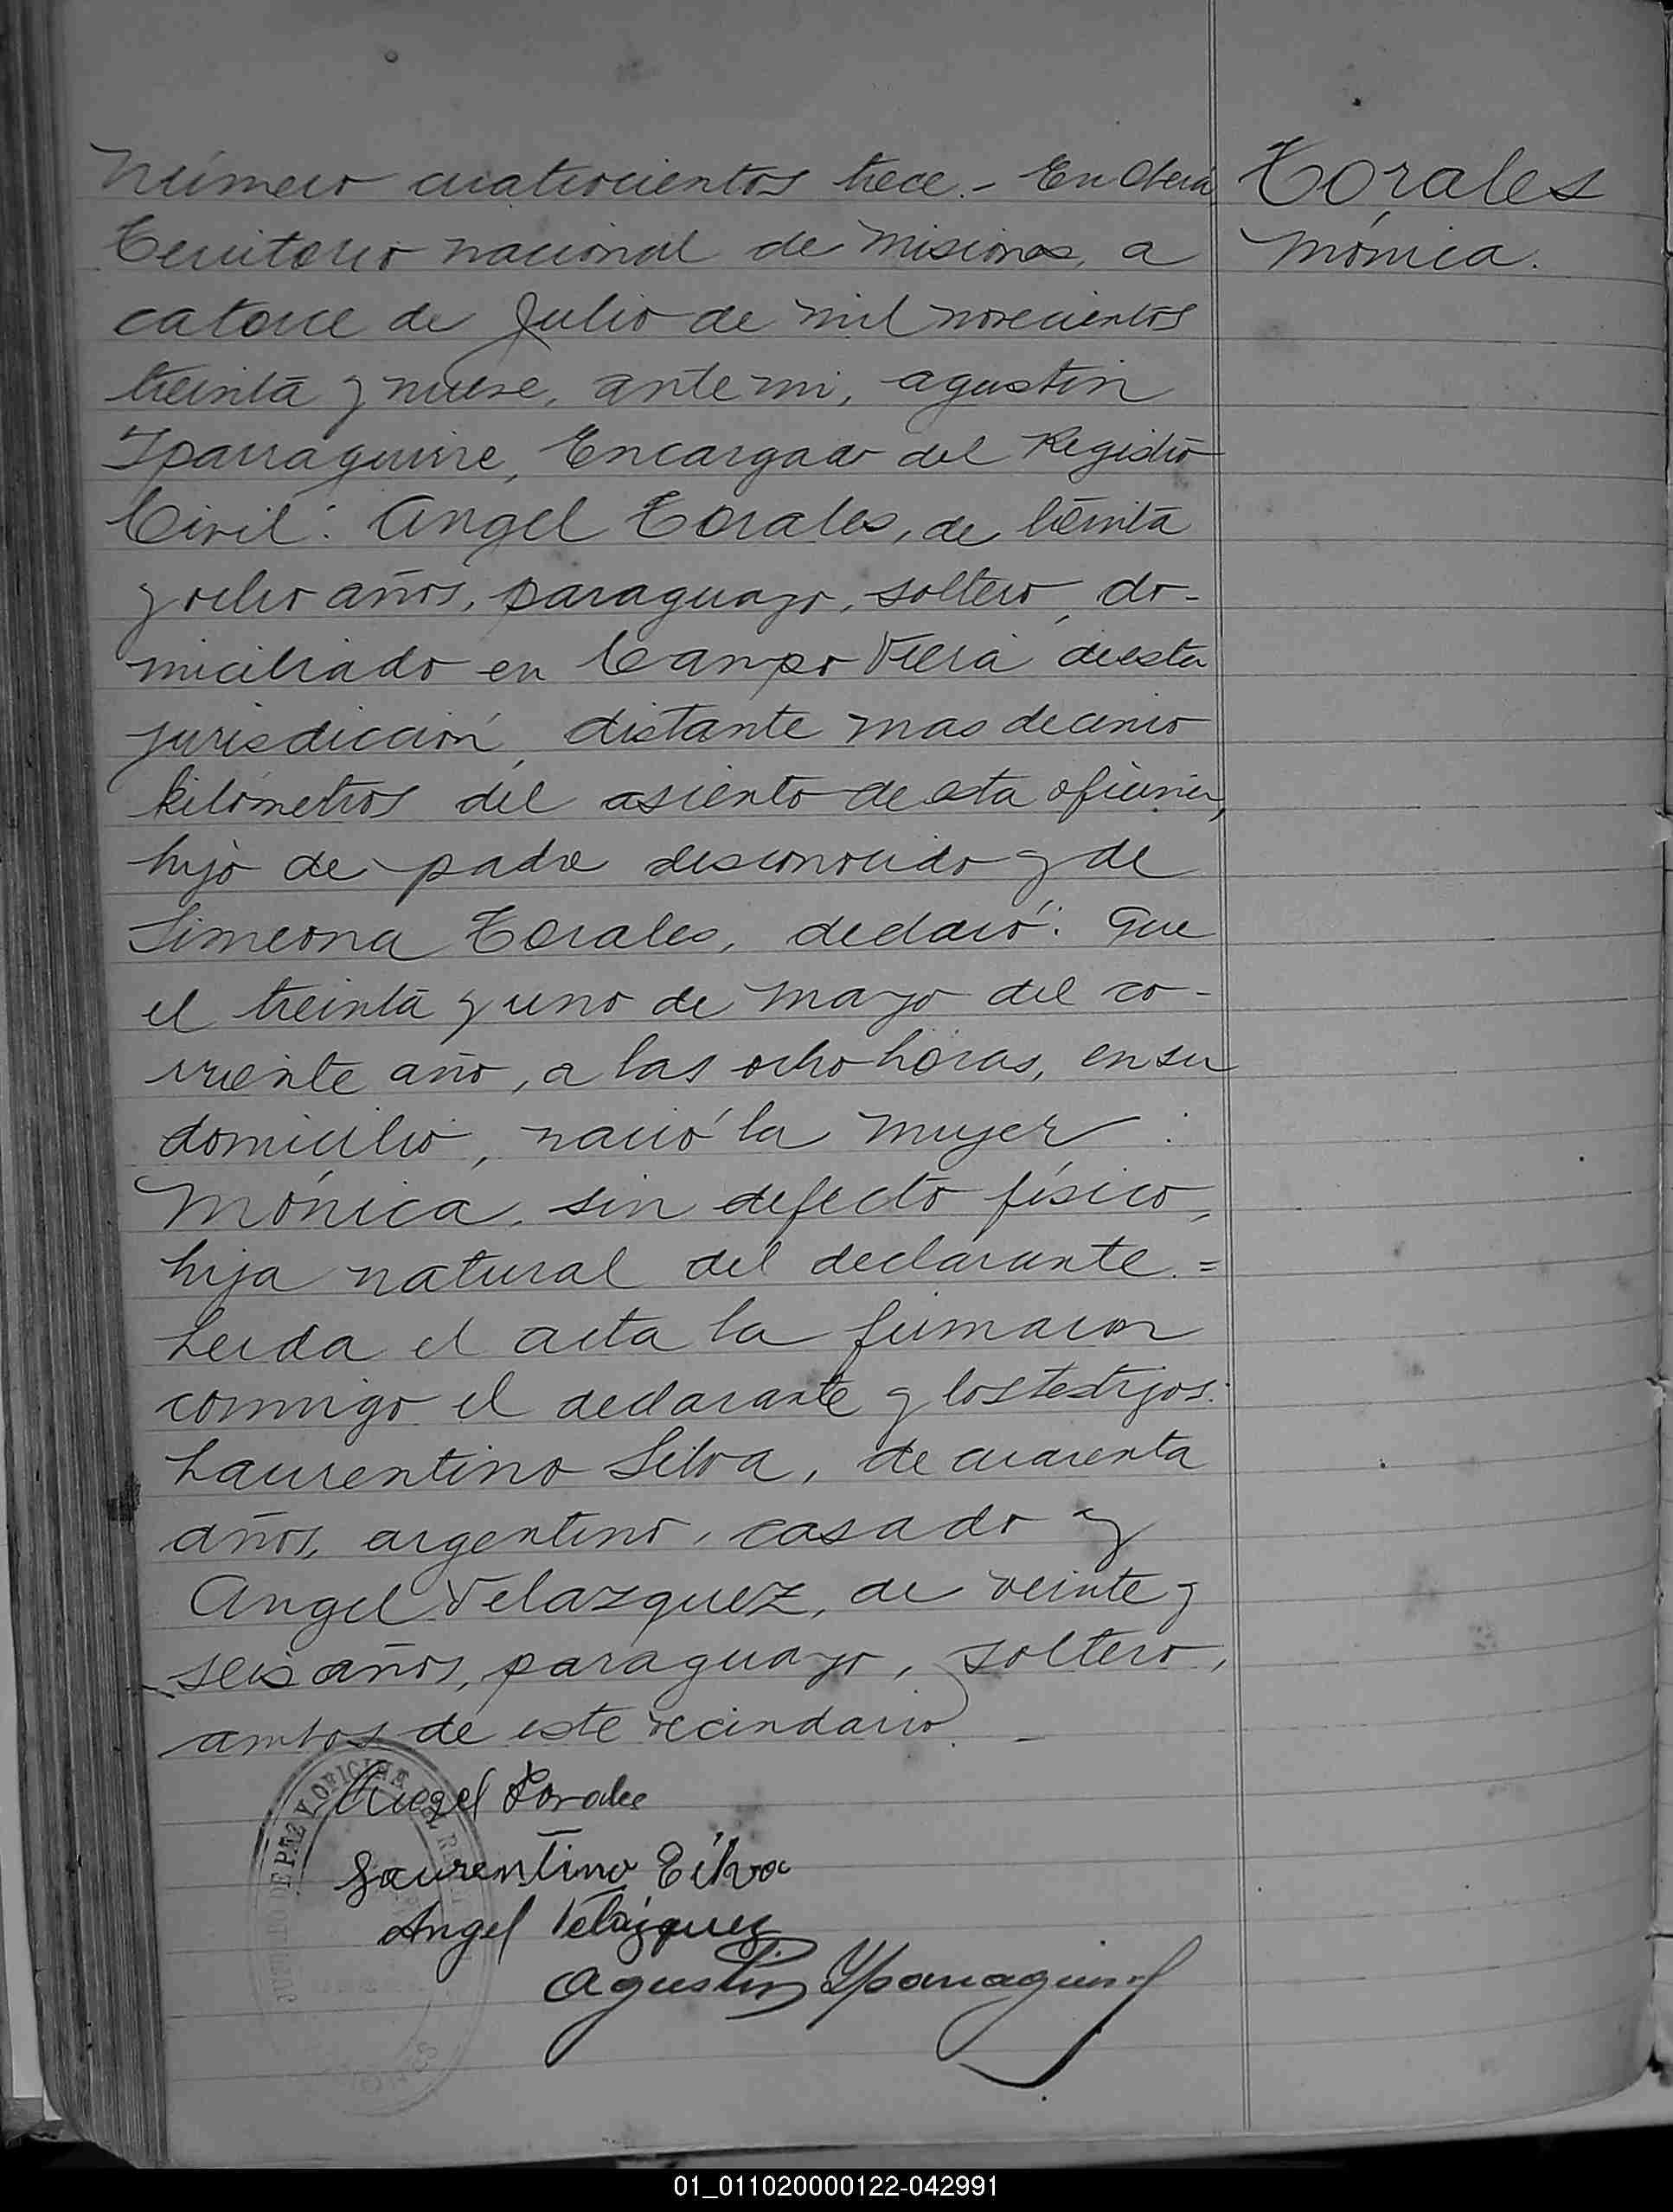 Número cuatrocientos trece.- En Oberá,
Territorio nacional de Misiones, a
catorce de Julio de mil novecientos
treinta y nueve, ante mi, Agustin
Iparraguirre, Encargado del Registro
Civil: Angel Torales, de treinta
y ocho años, paraguayo, soltero, do-
miciliado en Campo Viera de esta
jurisdicción, distante mas de cinco
kilómetros del asiento de esta oficina,
hijo de padre desconocido y de
Simeona Torales, declaró: Que
el treinta y uno de Mayo del co-
rriente año, a las ocho horas, en su
domicilio, nació la mujer:
Mónica, sin defecto físico,
hija natural del declarante.=
Leida el acta la firmaron
conmigo el declarante y los testigos:
Laurentino Silva, de cuarenta
años, argentino, casado y
Angel Velazquez, de veinte y
seis años, paraguayo, soltero,
ambos de este vecindario. -
Torales
Mónica.
Angel Torales
Laurentino Silva
Angel Velázquez
Agustin Yparraguirre
JUZGADO DE PAZ Y OFICINA DEL
01_011020000122-042991